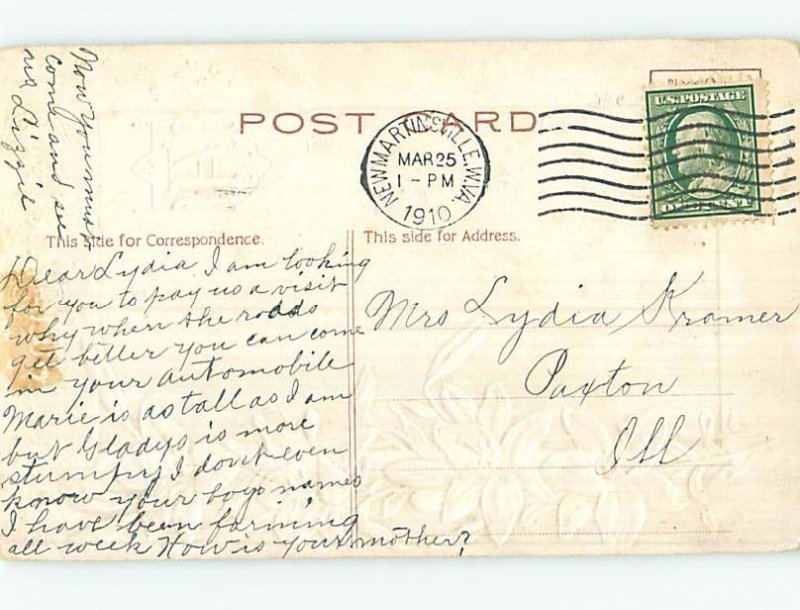 Now you must
come and see
us Lizzie
POST CARD
NEW MARTINSVILLE, W.VA.
MAR 25
1 - PM
1910
U.S. POSTAGE
This side for Correspondence.
This side for Address.
Dear Lydia, I am looking
for you to pay us a visit
why when the roads
get better you can come
in your automobile
Marie is as tall as I am
but Gladys is more
stumpy I don't even
know your boys names
I have been farming
all week How is your mother?
Mrs Lydia Kramer
Paxton
Ill